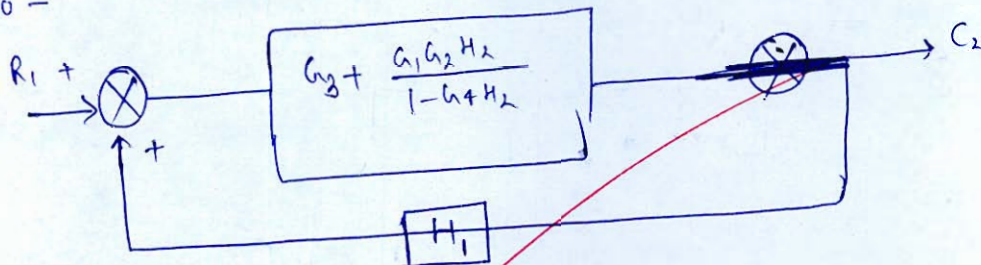 R₁ +
G₃ + G₁G₂H₂ / 1 - G₄H₂
C₂
+
H₁